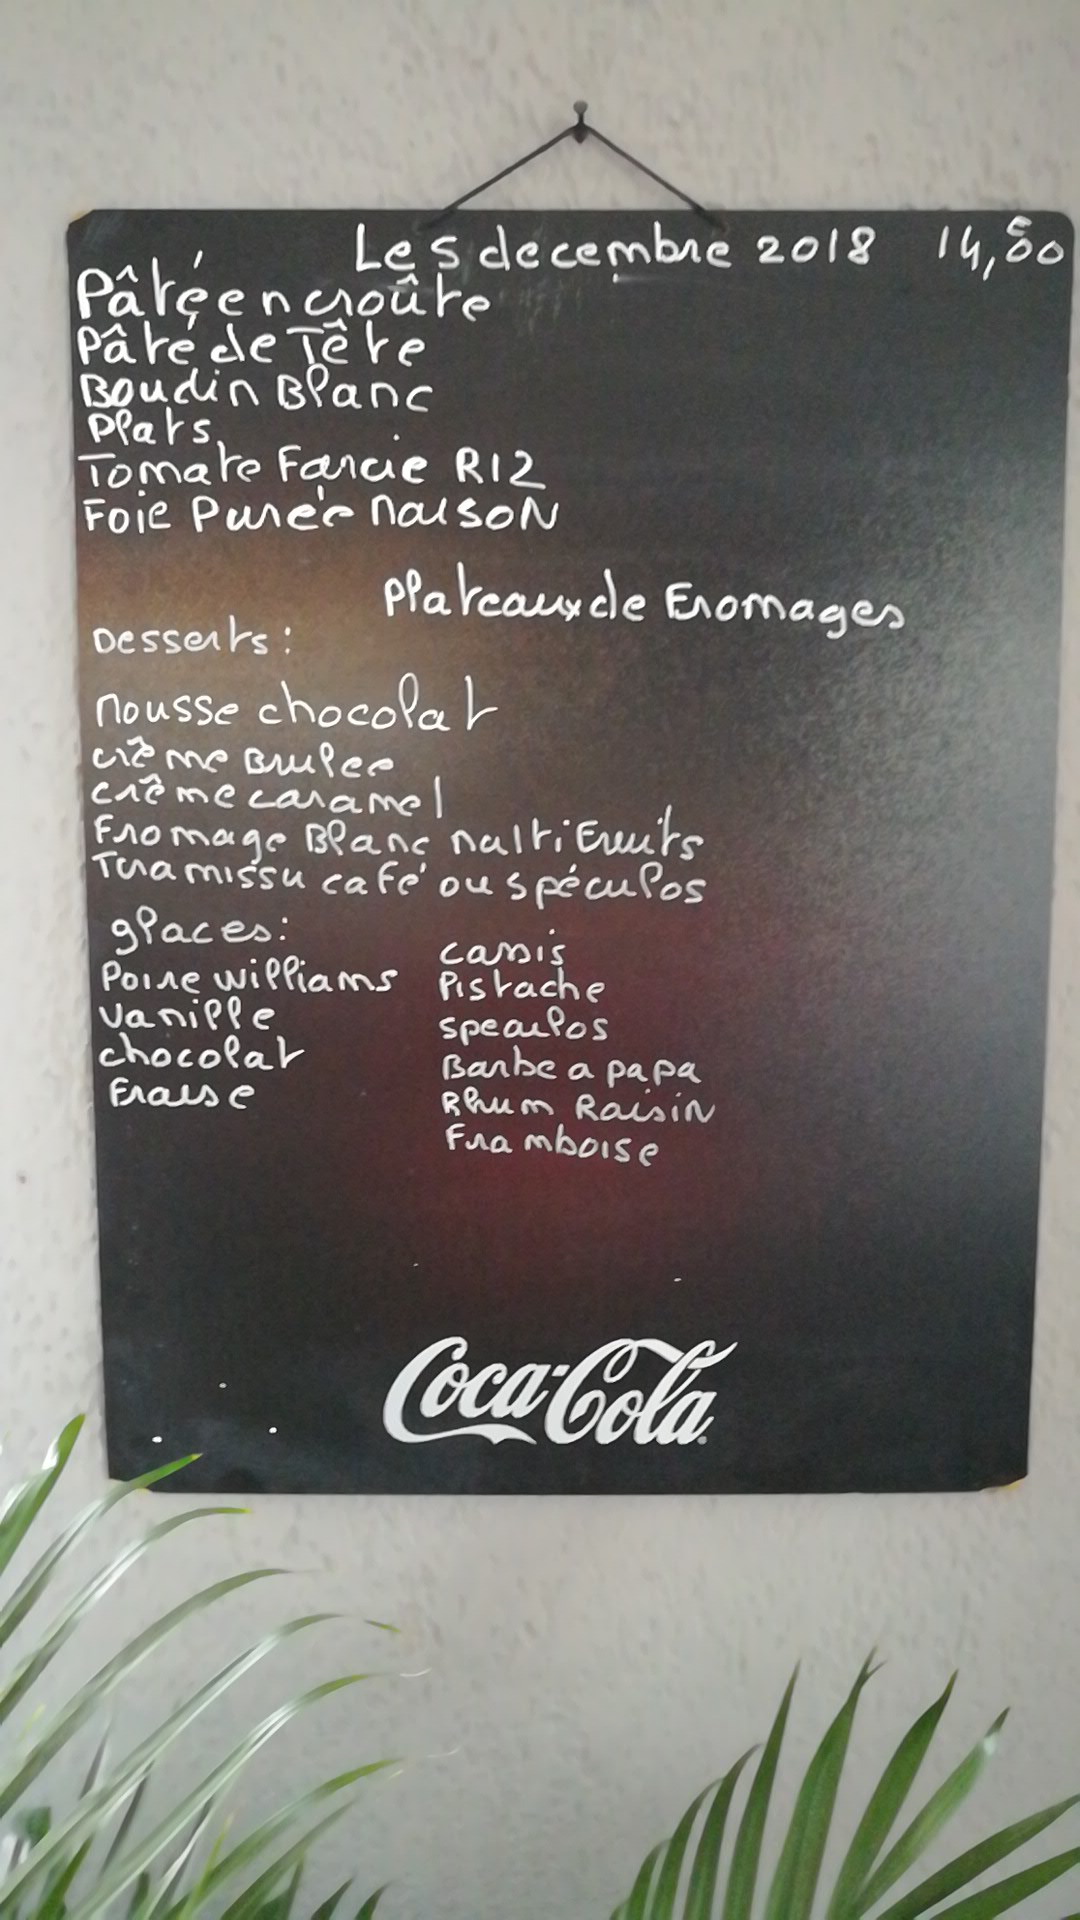 Le 5 decembre 2018 14,50
Pâté en croûte
Pâté de Tête
Boudin Blanc
Plats
Tomate Farcie RIZ
Foie Purée Maison
Plateaux de Fromages
Desserts:
Mousse chocolat
crême Brulee
crême caramel
Fromage Blanc MultiFruits
Tiramissu café ou spéculos
glaces:
Poire williams
Vanille
chocolat
Fraise
cassis
Pistache
speculos
Barbe a papa
Rhum Raisin
Framboise
Coca-Cola